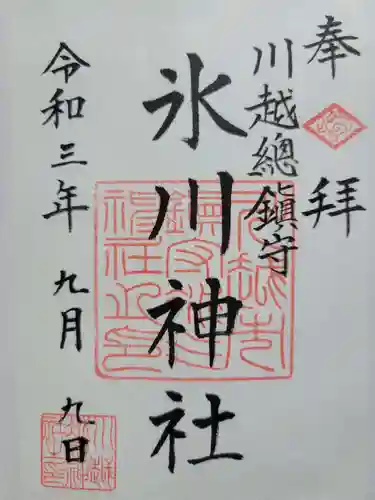 奉拝
川越總鎮守
氷川神社
令和三年九月九日